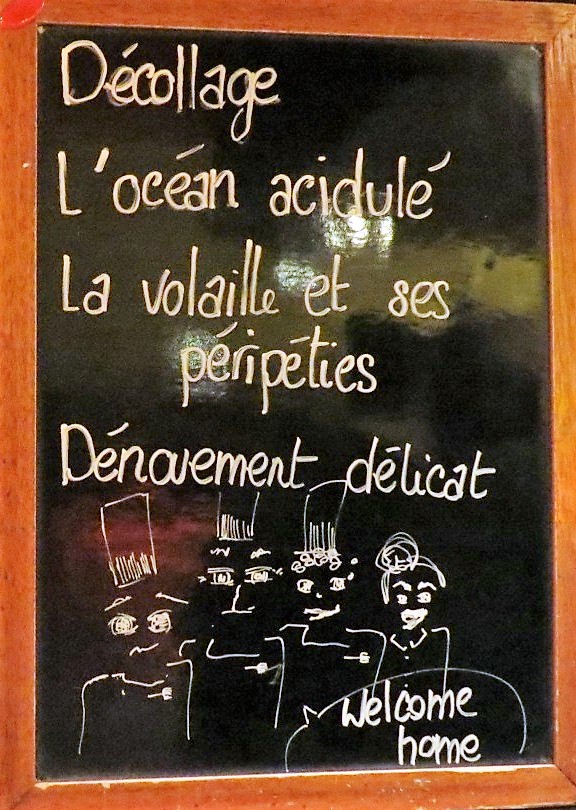 Décollage
L'océan acidulé
La volaille et ses
péripéties
Dénouement délicat
Welcome
home